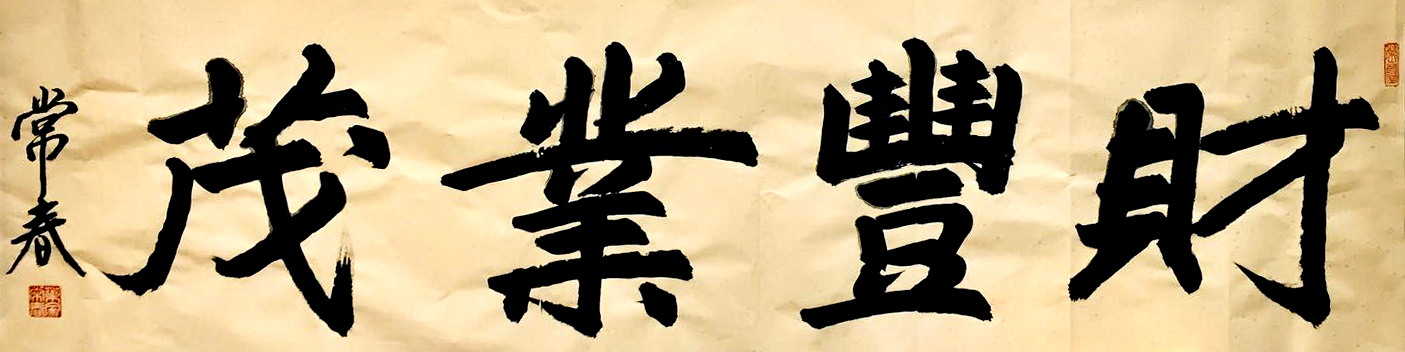 財豐業茂
常春